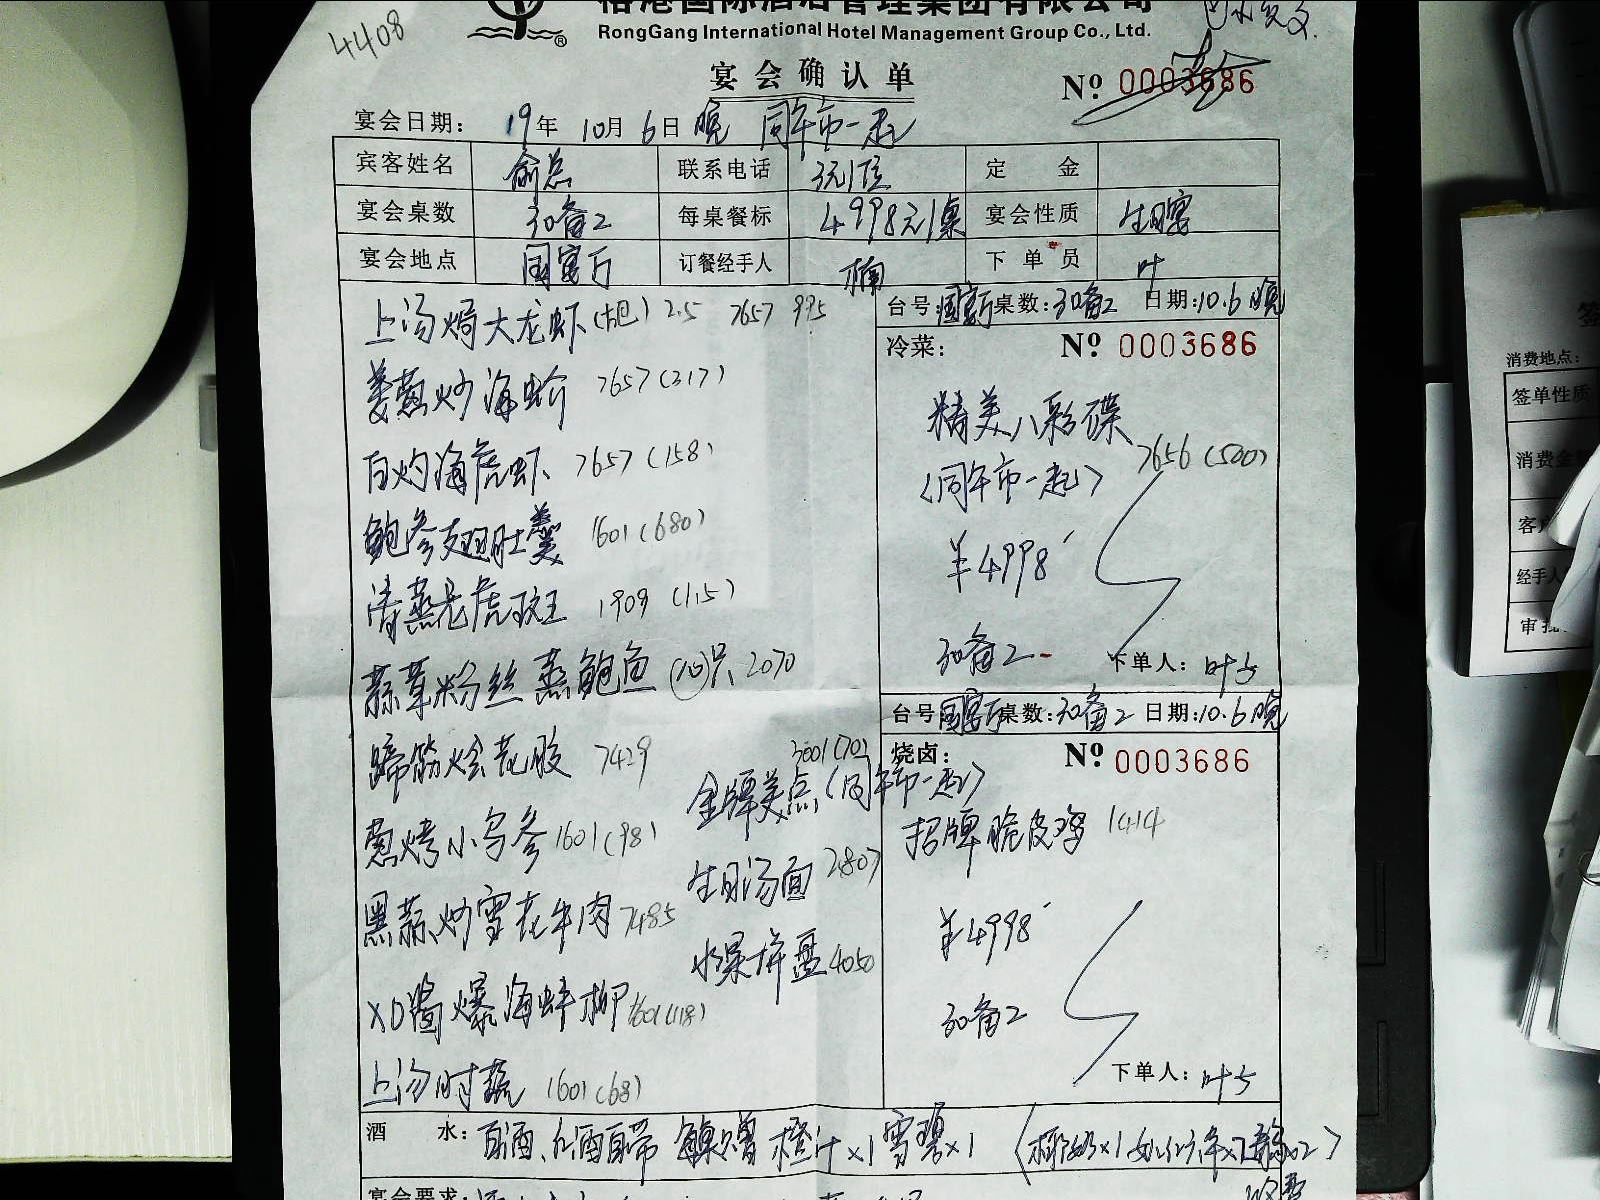 4408
榕港国际酒店管理集团有限公司
RongGang International Hotel Management Group Co., Ltd.
宴会确认单
Nº 0003686
宴会日期： 19年 10月 6日 晚 同午市一起
宾客姓名 俞总 联系电话 3元/位 定金
宴会桌数 30备2 每桌餐标 4998元/桌 宴会性质 生日宴
宴会地点 国宴厅 订餐经手人 楠 下单员 叶
上汤焗大龙虾 2.5 7657 995
姜葱炒海蚧 7657(317)
白灼海虎虾 7657(158)
鲍参翅肚羹 1601(680)
清蒸老虎斑 1909 (1.15)
蒜茸粉丝蒸鲍鱼 (10)只 2070
蹄筋烩花胶 7429
葱烤小乌参 1601(98)
黑蒜炒雪花牛肉 7485
XO酱爆海蚌柳 1601(118)
上汤时蔬 1601(68)
3001(70)
金牌美点(同午市一起)
生日汤面 2807
水果拼盘 4050
台号：国宴厅 桌数：30备2 日期：10.6晚
冷菜： Nº 0003686
精美八彩碟
7656(500)
(同午市一起)
¥4998
30备2
下单人： 叶
台号 国宴厅 桌数：30备2 日期：10.6晚
烧卤： Nº 0003686
招牌脆皮鸡 1414
¥4998
30备2
下单人： 叶
酒水： 白酒、红酒自带 每桌赠 橙汁×1 雪碧×1
宴会要求：
签单性质
消费地点：
消费金
客
经手人
审批